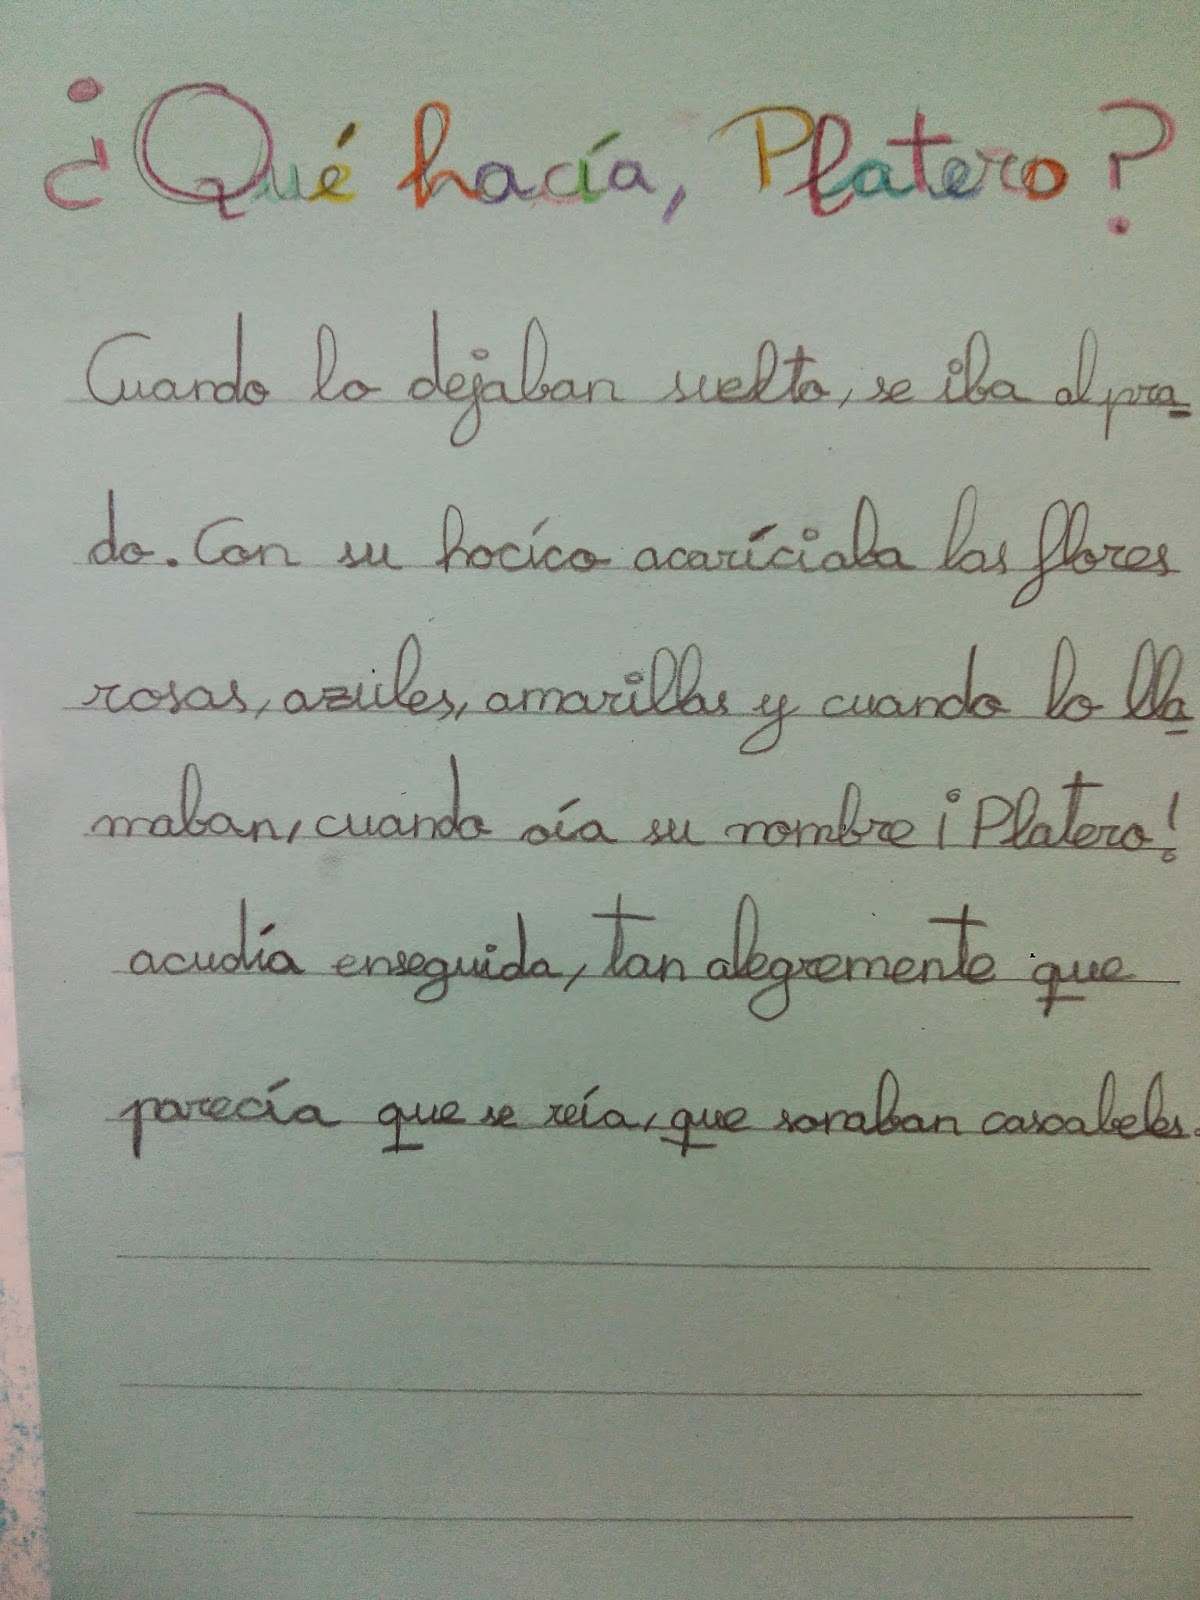 ¿Qué hacía, Platero?
Cuando lo dejaban suelto, se iba al pra-
do. Con su hocico acariciaba las flores
rosas, azules, amarillas y cuando lo lla-
maban, cuando oía su nombre ¡Platero!
acudía enseguida, tan alegremente que
parecía que se reía, que sonaban cascabeles.